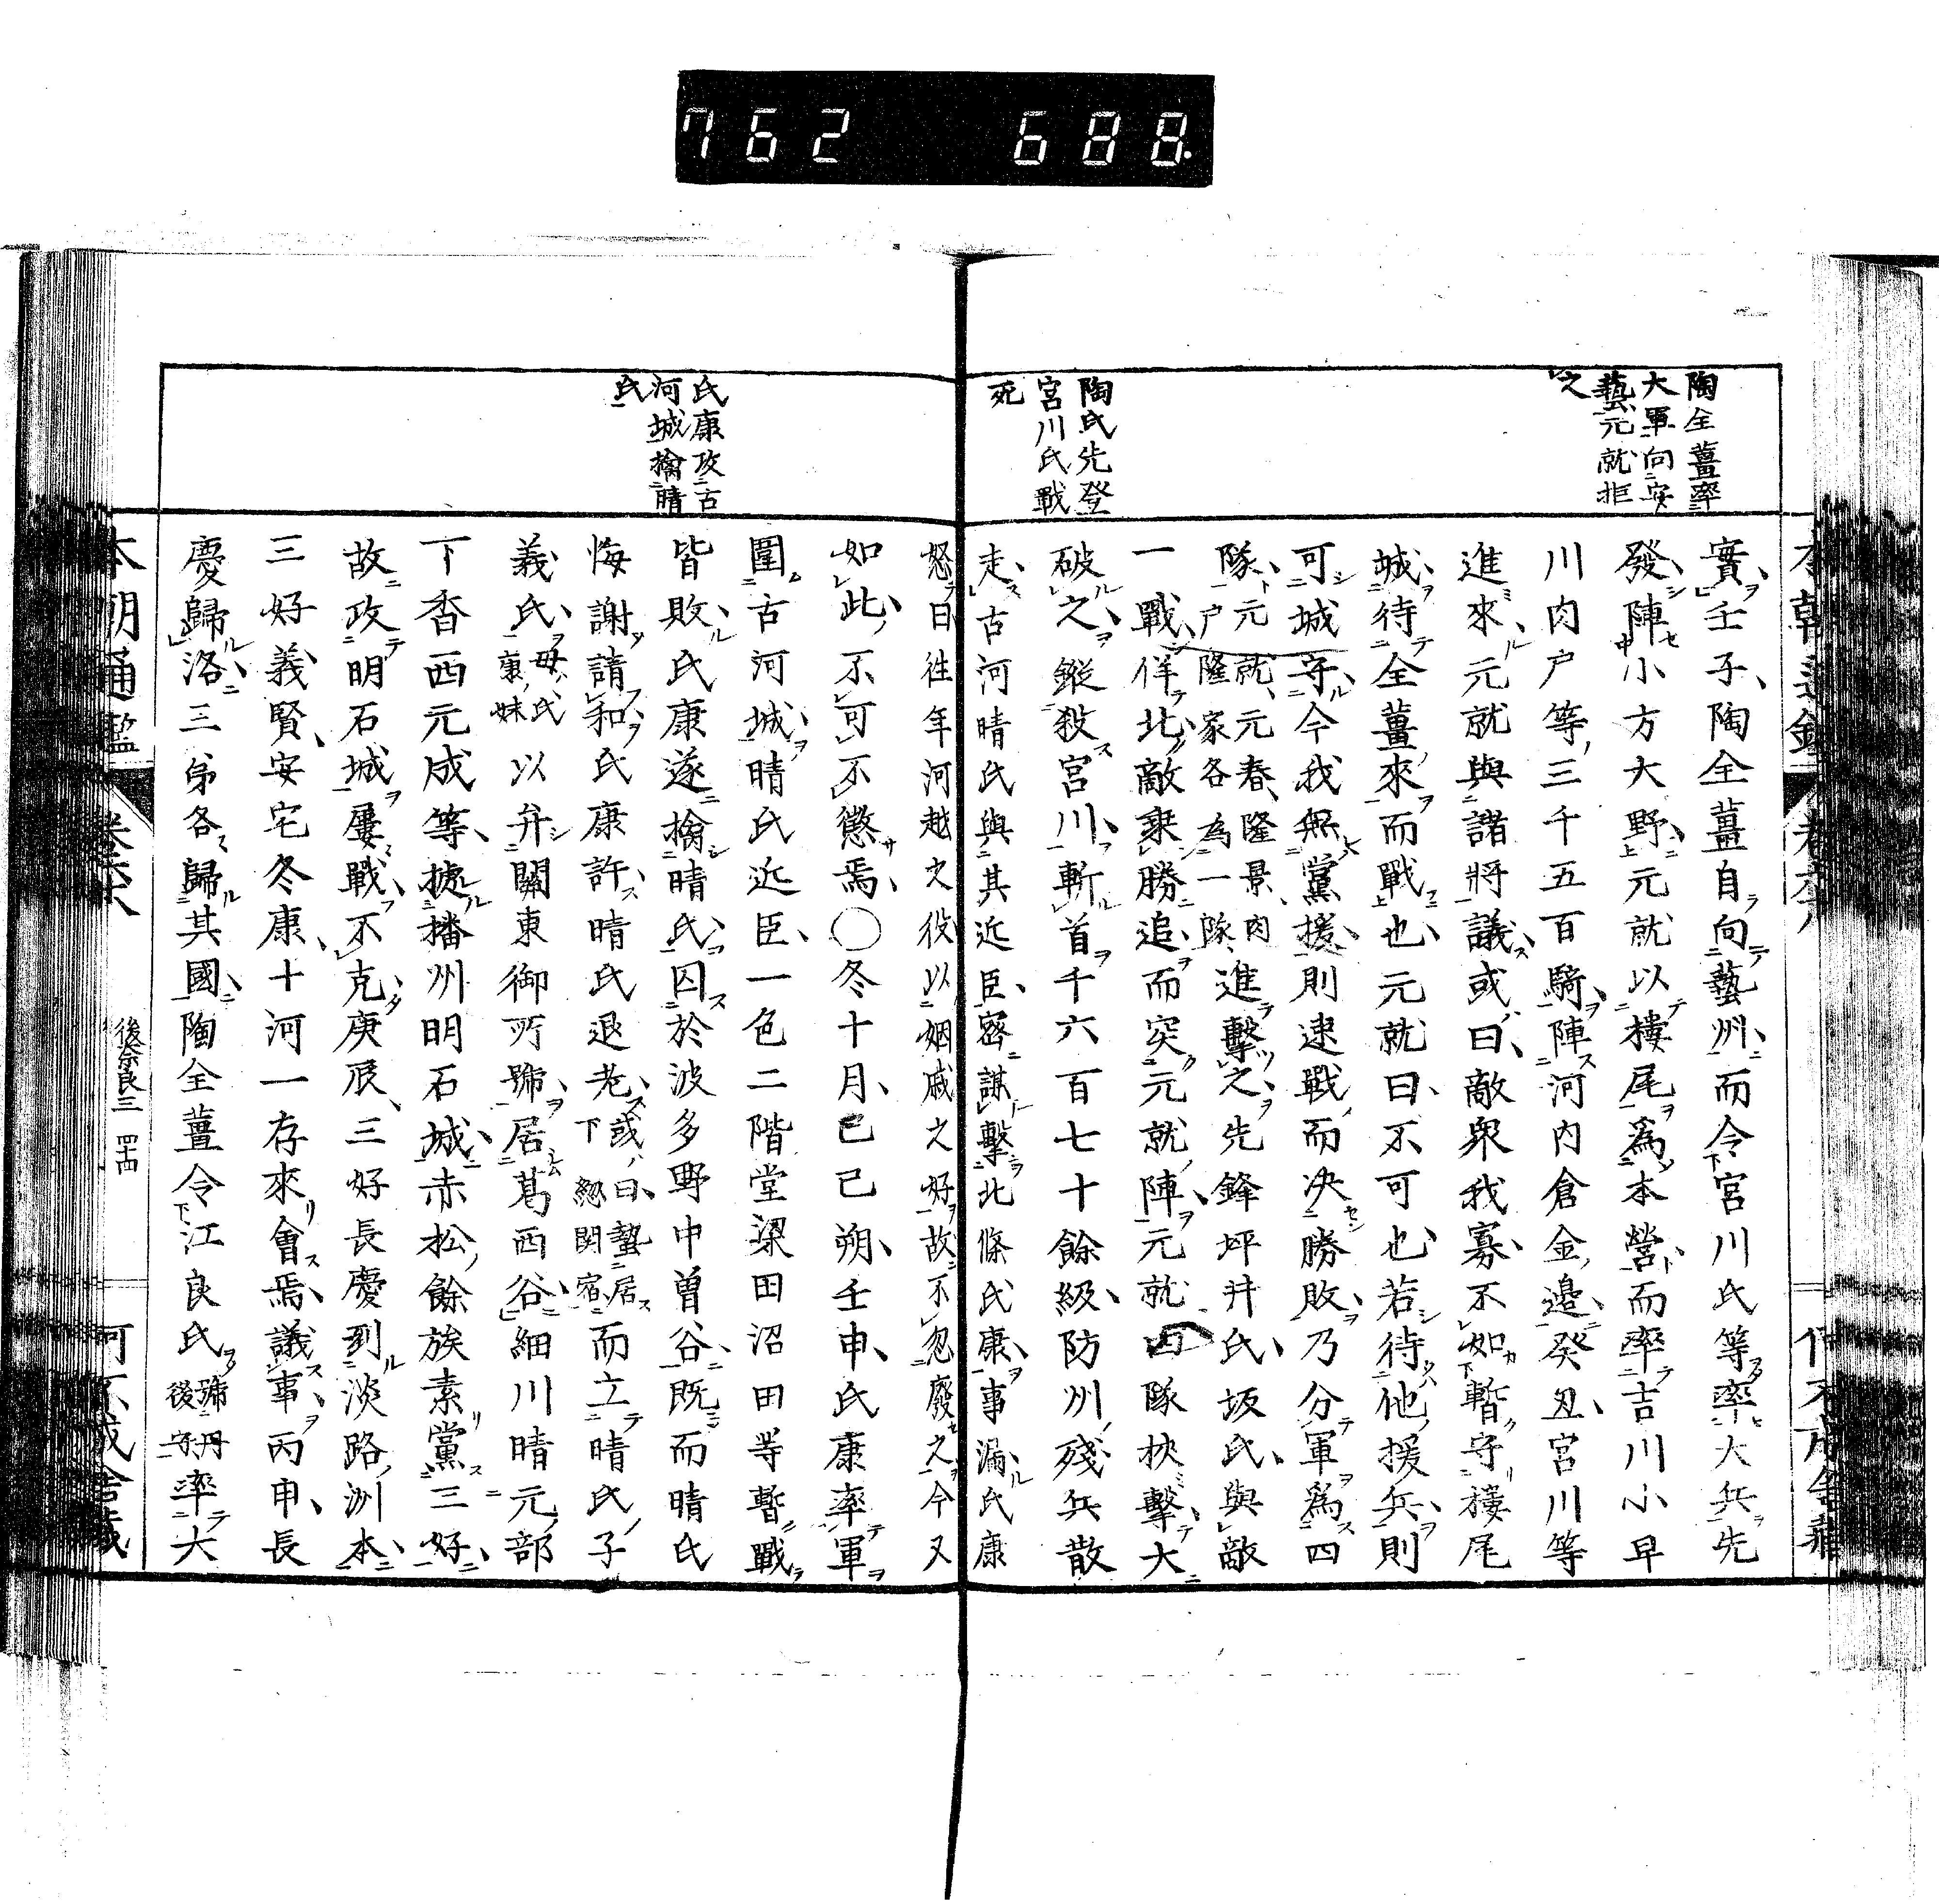 762 688
陶全薑率
大軍向安
藝元就拒
之
實壬子陶全薑自向藝州而令宮川氏等率大兵先
發陣小方大野元就以樓尾爲本營而率吉川小早
川肉戸等三千五百騎陣河内倉金邉癸丑宮川等
進來元就與諸將議或曰敵衆我寡不如暫守樓尾
城待全薑來而戰也元就曰不可也若待他援兵則
可城守今我無黨援則逮戰而决勝敗乃分軍爲四
隊元就元春隆景肉
戸隆家各為一隊進擊之先鋒坪井氏坂氏與敵
一戰佯北敵乗勝追而突元就陣元就四隊挾擊大
陶氏先登
宮川氏戰
死
破之鏦殺宮川斬首千六百七十餘級防州殘兵散
走古河晴氏與其近臣密謀擊北條氏康事漏氏康
怒曰往年河越之役以姻戚之好故不忽廢之今又
如此不可不懲焉○冬十月己巳朔壬申氏康率軍
圍古河城晴氏近臣一色二階堂梁田沼田等暫戰
氏康攻古
河城擒晴
氏
皆敗氏康遂擒晴氏囚於波多野中曽谷既而晴氏
悔謝請和氏康許晴氏退老或曰蟄居
下総関宿而立晴氏子
義氏母氏
康妹以弁關東御所號居葛西谷細川晴元部
下香西元成等據播州明石城赤松餘族素黨三好
故攻明石城屢戰不克庚辰三好長慶到淡路洲本
三好義賢安宅冬康十河一存來會焉議事丙申長
慶歸洛三弟各歸其國陶全薑令江良氏號丹
後守率大
本朝通鑑
後奈良三 四十四